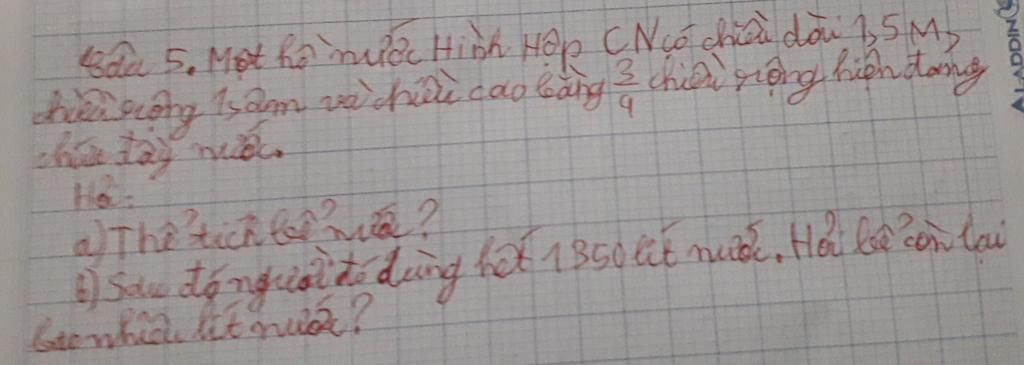 Câu 5. Một hồ nước Hình Hộp CN có chiều dài 1,5 M,
chiều rộng 1,2m và chiều cao bằng 3/4 chiều rộng hiện đang
chứa đầy nước.
Hỏi:
a) Thể tích bể nước?
b) Sau đó người ta dùng hết 1350 lít nước. Hỏi bể còn lại
bao nhiêu lít nước?
ALADDIN